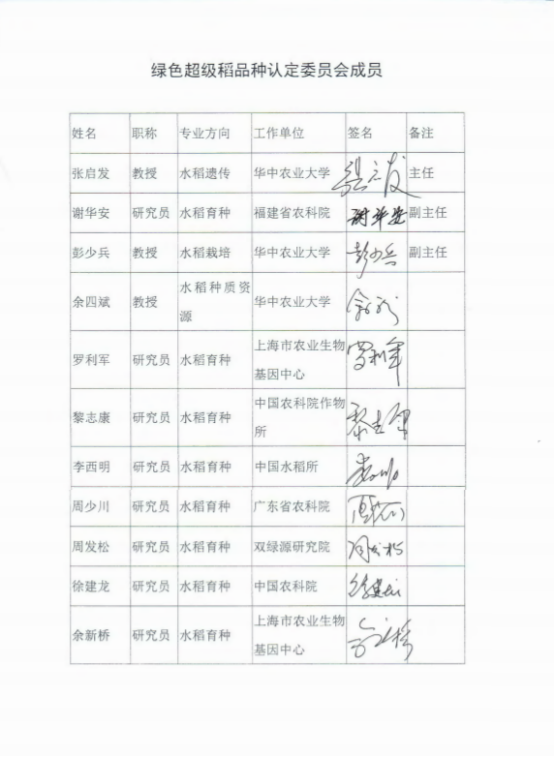 绿色超级稻品种认定委员会成员
姓名 职称 专业方向 工作单位 签名 备注
张启发 教授 水稻遗传 华中农业大学 张启发 主任
谢华安 研究员 水稻育种 福建省农科院 谢华安 副主任
彭少兵 教授 水稻栽培 华中农业大学 彭少兵 副主任
余四斌 教授 水稻种质资
源 华中农业大学
罗利军 研究员 水稻育种 上海市农业生物
基因中心 罗利军
黎志康 研究员 水稻育种 中国农科院作物
所 黎志康
李西明 研究员 水稻育种 中国水稻所
周少川 研究员 水稻育种 广东省农科院
周发松 研究员 水稻育种 双绿源研究院 周发松
徐建龙 研究员 水稻育种 中国农科院 徐建龙
余新桥 研究员 水稻育种 上海市农业生物
基因中心 余新桥